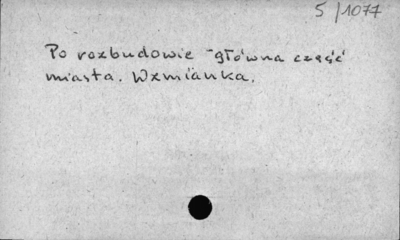 5/1077
Po rozbudowie - główna część
miasta. Wzmianka.